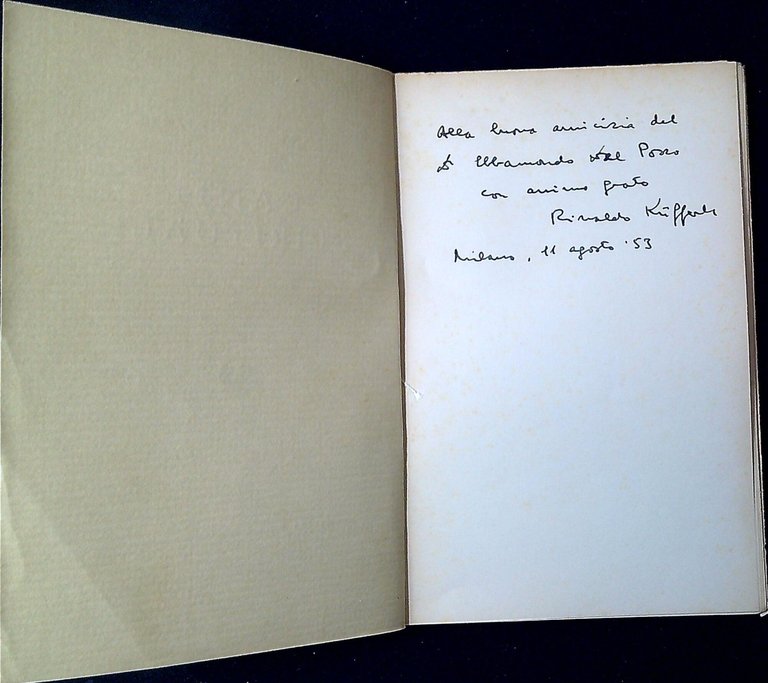 Alla buona amicizia del
Dr Ubamondo dal Pozzo
con animo grato
Rinaldo Küfferle
Milano, 11 agosto '53